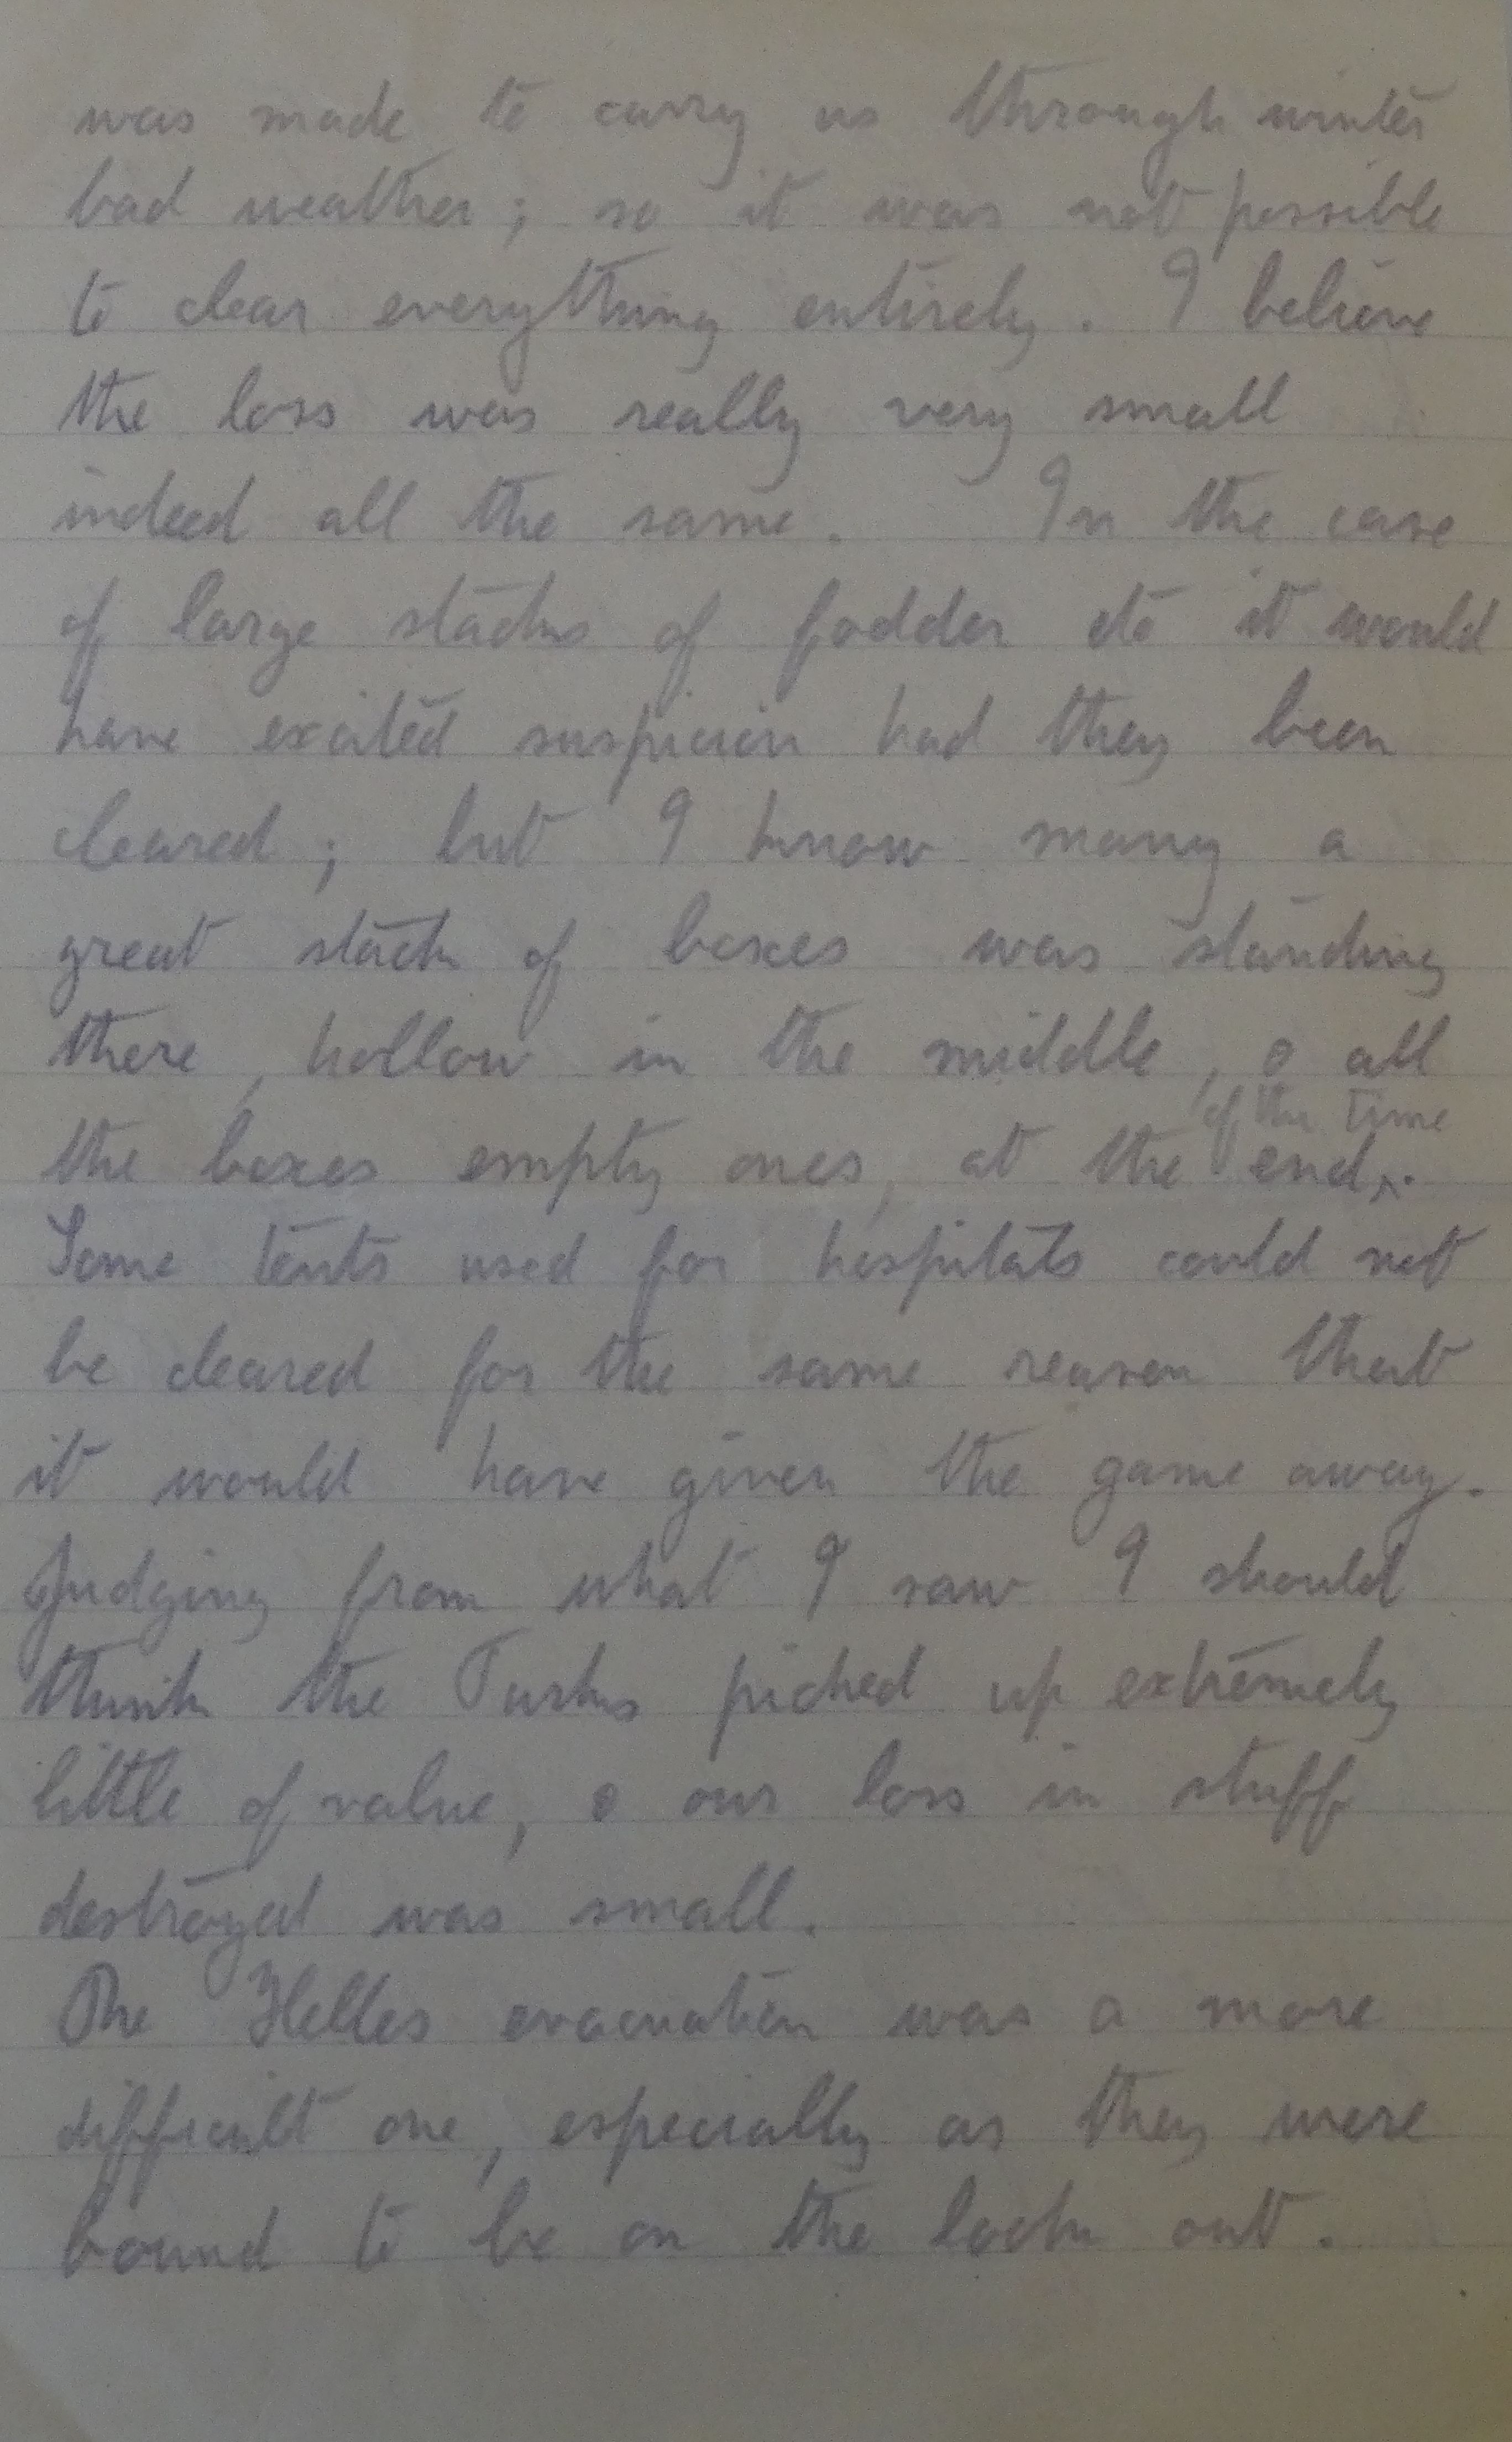 was made to carry us through winter
bad weather; so it was not possible
to clear everything entirely. I believe
the loss was really very small
indeed all the same. In the case
of large stacks of fodder etc it would
have excited suspicion had they been
cleared; but I know many a
great stack of boxes was standing
there, hollow in the middle, & all
of the time
the boxes empty ones, at the end.
Some tents used for hospitals could not
be cleared for the same reason that
it would have given the game away.
Judging from what I saw I should
think the Turks picked up extremely
little of value, & our loss in stuff
destroyed was small.
The Helles evacuation was a more
difficult one, especially as they were
bound to be on the look out.